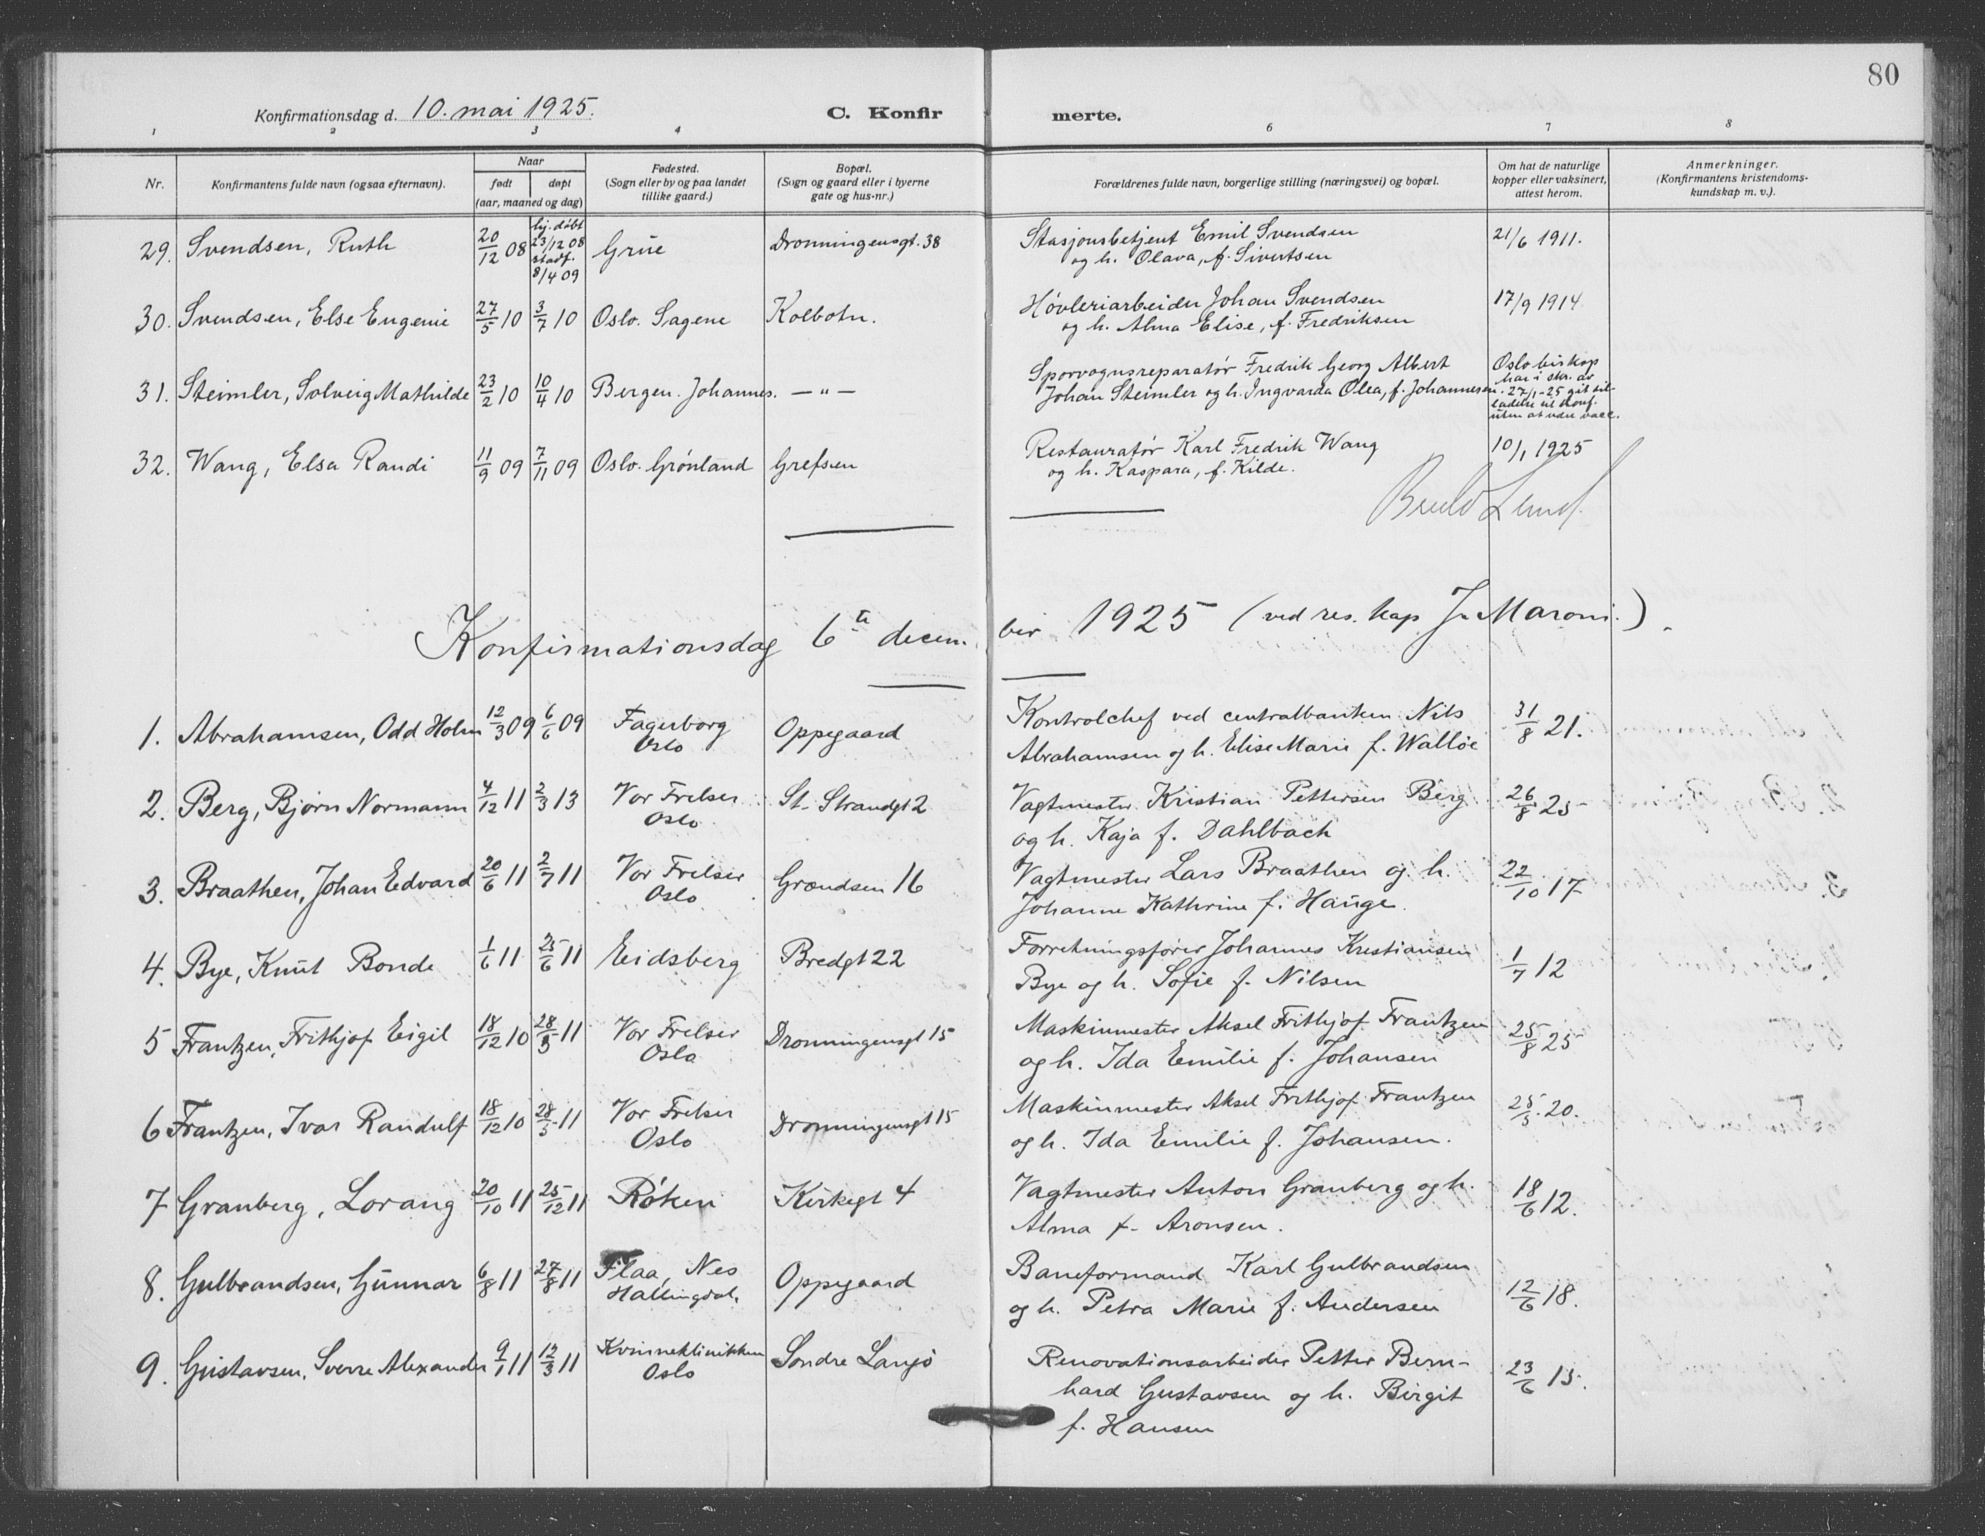 80
Konfirmationsdag d. 10. mai 1925. C. Konfir merte.
1 2 3 4 6 7 8
Nr.
Konfirmantens fulde navn (ogsaa efternavn).
Naar
født døpt
(aar, maaned og dag)
Fødested.
(Sogn eller by og paa landet
tillike gaard.)
Bopæl.
(Sogn og gaard eller i byerne
gate og hus-nr.)
Forældrenes fulde navn, borgerlige stilling (næringsvei) og bopæl.
Om hat de naturlige
kopper eller vaksinert,
attest herom.
Anmerkninger.
(Konfirmantens kristendoms-
kundskap m. v.).
29. Svendsen, Ruth 20/12 08 hj. døbt 23/12 08 stadf. 8/4 09 Grue Dronningensgt. 38 Stasjonsbetjent Emil Svendsen 21/6 1911.
og h. Olava, f. Sivertsen
30. Svendsen, Else Eugenie 27/5 10 3/7 10 Oslo. Sagene Kolbotn. Høvleriarbeider Johan Svendsen 17/9 1914
og h. Alma Elise, f. Fredriksen
31. Steimler, Solveig Mathilde 23/2 10 10/4 10 Bergen. Johannes. — " — Sporvognsreparatør Fredrik Georg Albert
Johan Steimler og h. Ingvarda Olea, f. Johannesen.
Oslo biskop
har i skr. av
27/1-25 git til-
ladelse til konf.
uten at være vacc.
32. Wang, Elsa Randi 11/9 09 7/11 09 Oslo. Grønland Grefsen Restauratør Karl Fredrik Wang 10/1 1925
og h. Kaspara, f. Kilde.
Lund.
Konfirmationsdag 6te decem. ber 1925 (ved res. kap J. Maroni.).
1. Abrahamsen, Odd Holm 12/3 09 6/6 09 Fagerborg Oslo Oppegaard Kontrolchef ved centralbanken Nils 31/8 21.
Abrahamsen og h. Elise Marie f. Walløe
2. Berg, Bjørn Normann 4/12 11 2/3 13 Vor Frelser Oslo St. Strandgt 2 Vagtmester Kristian Pettersen Berg 26/8 25
og h. Kaja f. Dahlbach
3. Braathen, Johan Edvard 20/6 11 2/7 11 Vor Frelser Oslo Grændsen 16 Vagtmester Lars Braathen og h. 22/10 17
Johanne Kathrine f. Hauge.
4. Bye, Knut Bonde 1/6 11 25/6 11 Eidsberg Bredgt 22 Forretningsfører Johannes Kristiansen 1/7 12
Bye og h. Sofie f. Nilsen
5 Frantzen, Frithjof Eigil 18/12 10 28/5 11 Vor Frelser Oslo Dronningensgt 15 Maskinmester Aksel Frithjof Frantzen 25/8 25
og h. Ida Emilie f. Johansen
6 Frantzen, Ivar Randulf 18/12 10 28/5 11 Vor Frelser Oslo Dronningensgt 15 Maskinmester Aksel Frithjof Frantzen 25/5 20.
og h. Ida Emilie f. Johansen.
7 Granberg, Lorang 20/10 11 25/12 11 Røken Kirkegt 4 Vagtmester Anton Granberg og h. 18/6 12.
Alma f. Aronsen.
8. Gulbrandsen, Gunnar 6/8 11 27/8 11 Flaa, Nes Hallingdal. Oppegaard Baneformand Karl Gulbrandsen 12/6 18.
og h. Petra Marie f. Andersen
9. Gustavsen, Sverre Alexander 9/1 11 12/3 11 Kvinneklinikken Oslo Søndre Langø Renovationsarbeider Petter Bern- 23/6 15.
hard Gustavsen og h. Birgit
f. Hansen